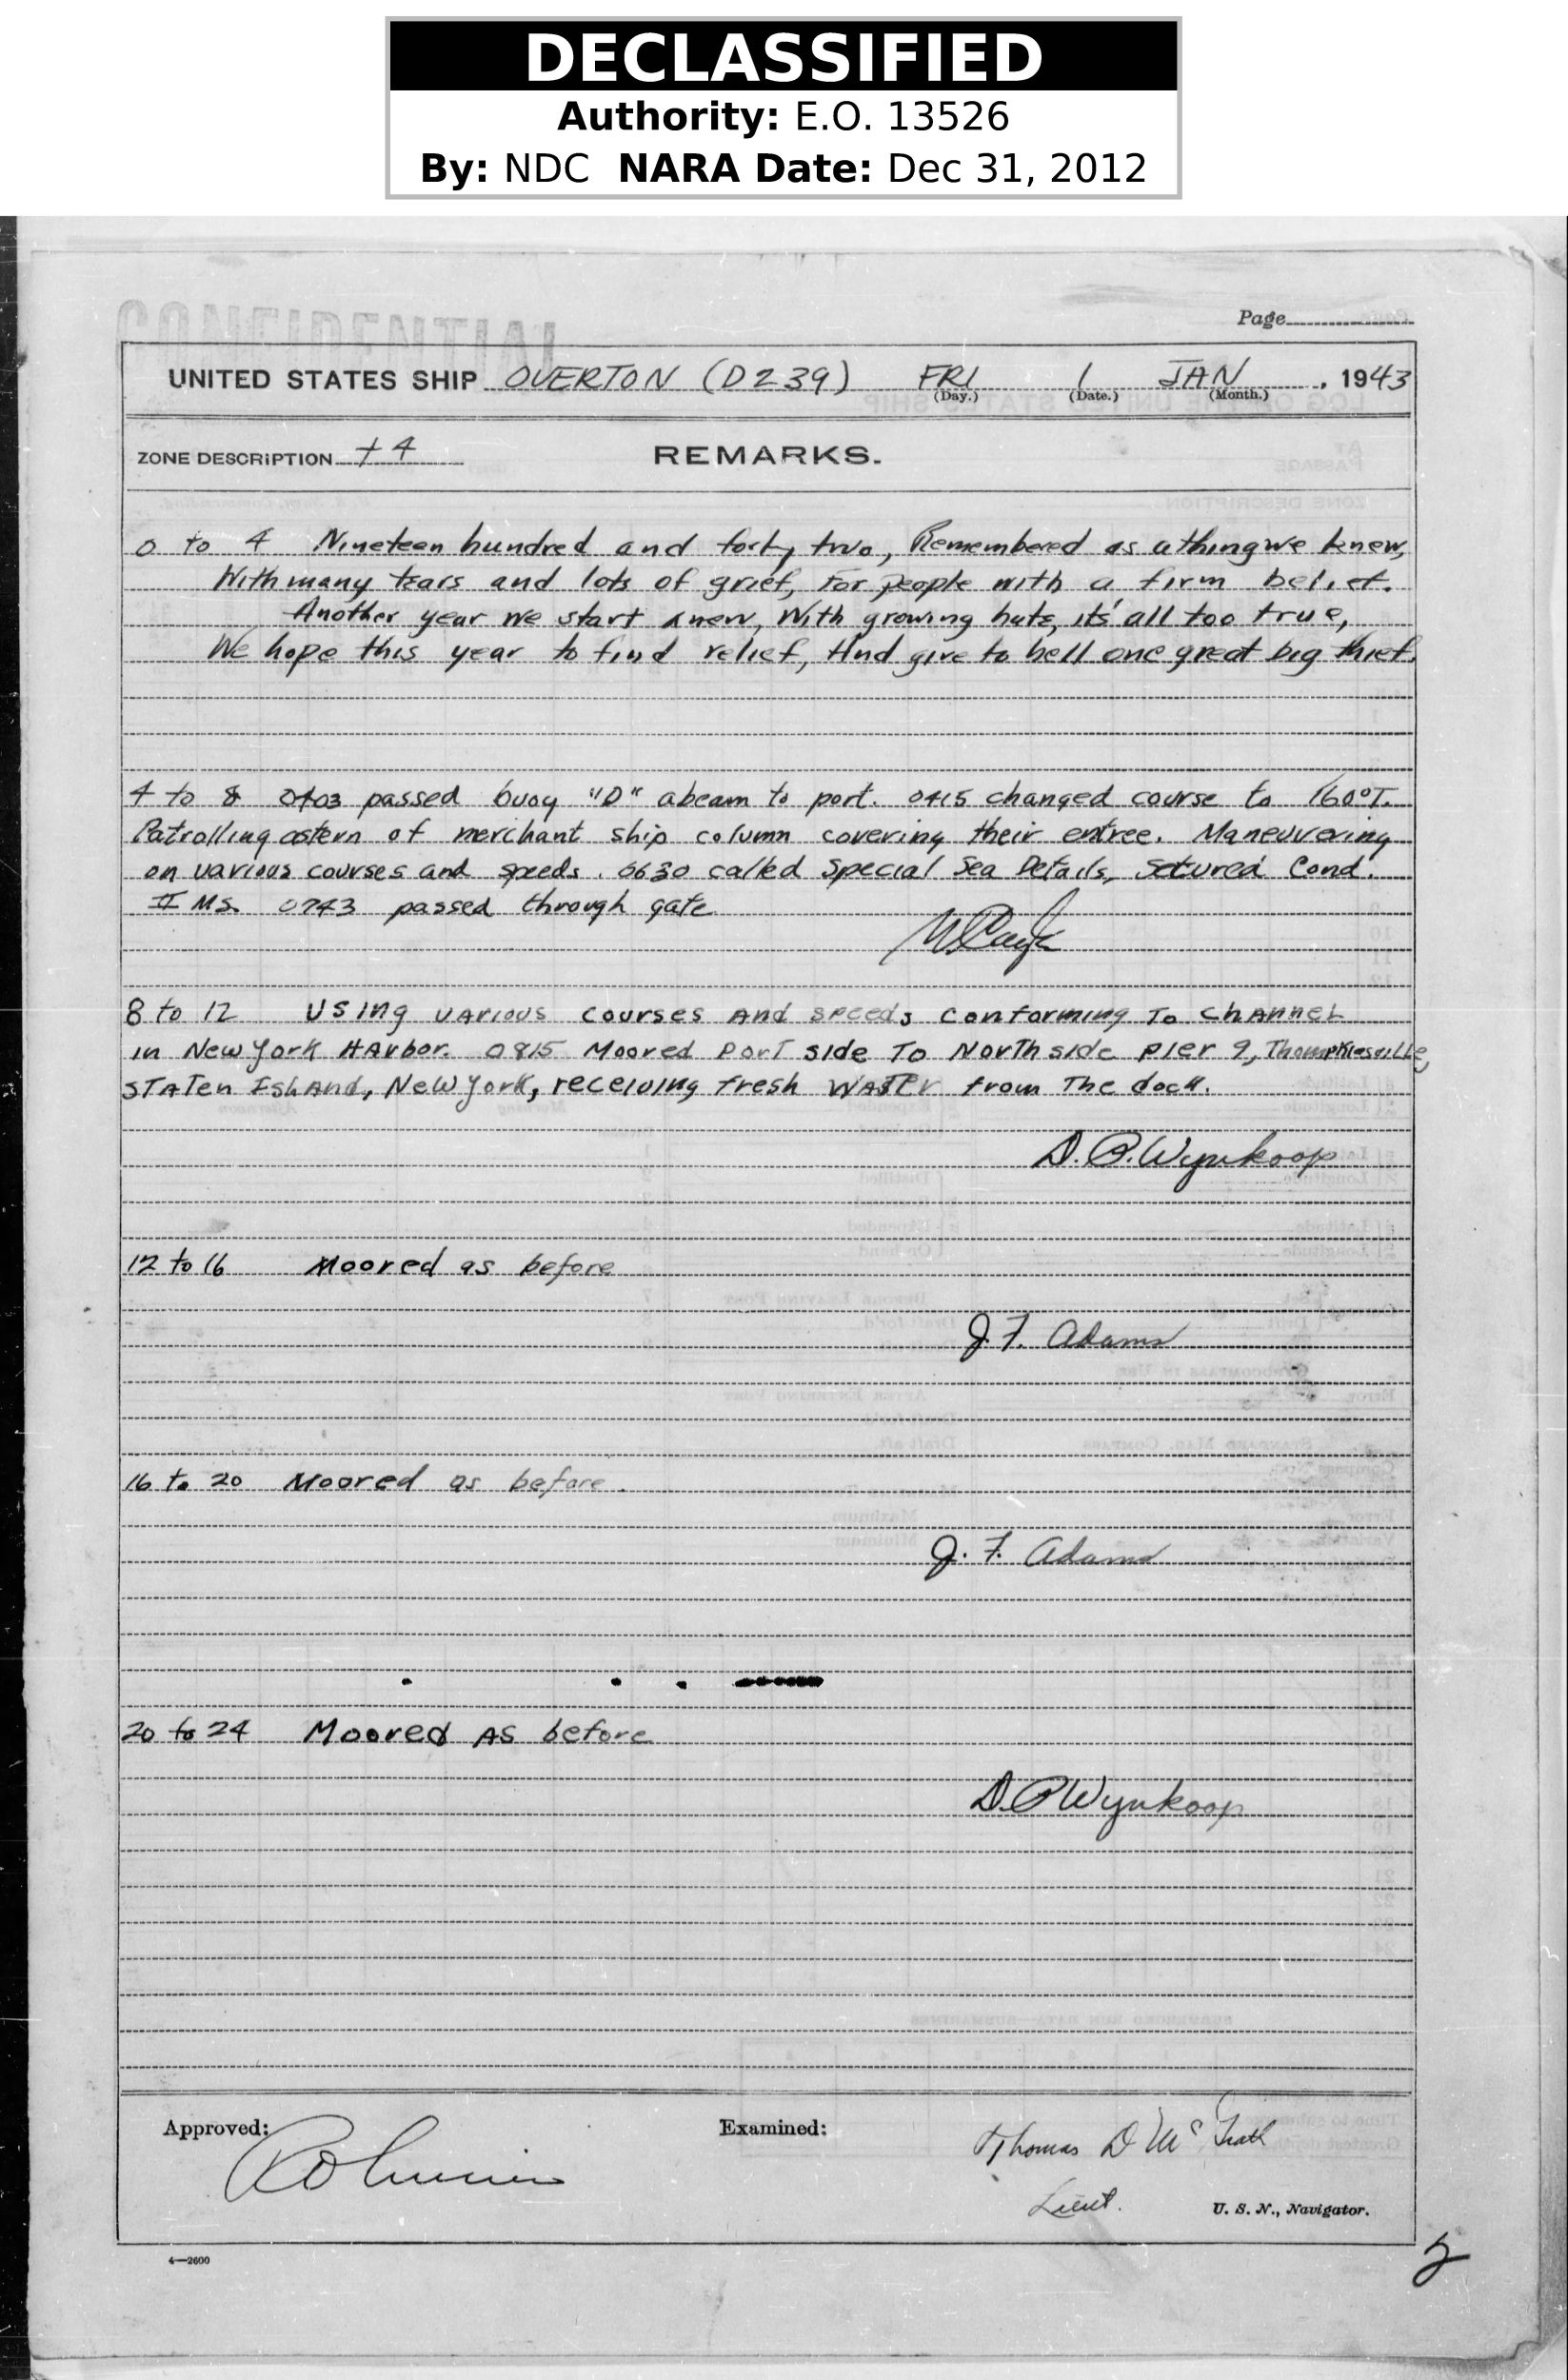 DECLASSIFIED
Authority: E.O. 13526
By: NDC NARA Date: Dec 31, 2012
CONFIDENTIAL
Page
UNITED STATES SHIP OVERTON (D239) FRI 1 JAN , 1943
(Day.) (Date.) (Month.)
ZONE DESCRIPTION +4 REMARKS.
0 to 4 Nineteen hundred and forty two, Remembered as a thing we knew,
With many tears and lots of grief, For people with a firm belief.
Another year we start anew, With growing hate, it's all too true,
We hope this year to find relief, And give to hell one great big thief.
4 to 8 0403 passed buoy "D" abeam to port. 0415 changed course to 160°T.
Patrolling astern of merchant ship column covering their entree. Maneuvering
on various courses and speeds. 0630 called Special Sea Details, Secured Cond.
II MS. 0743 passed through gate
8 to 12 Using various courses and speeds conforming to channel
in New York Harbor. 0815 Moored port side to North side pier 9, Thompkinsville,
Staten Island, New York, receiving fresh water from the dock.
D. P. Wynkoop
12 to 16 Moored as before
J. F. Adams
16 to 20 Moored as before.
J. F. Adams
20 to 24 Moored as before
D. P. Wynkoop
Approved: Examined:
Thomas D McGrath
Lieut. U. S. N., Navigator.
4—2600
2